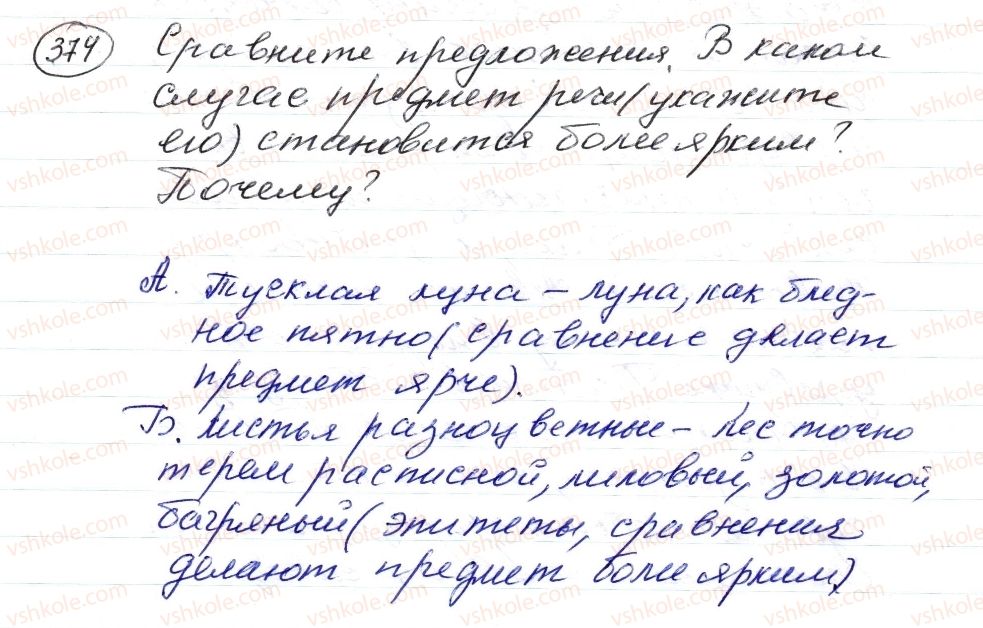 374 Сравните предложения. В каком
случае предмет речи (укажите
его) становится более ярким?
Почему?
А. Тусклая луна – луна, как блед-
ное пятно (сравнение делает
предмет ярче).
Б. Листья разноцветные – лес точно
терем расписной, лиловый, золотой,
багряный (эпитеты, сравнения
делают предмет более ярким)